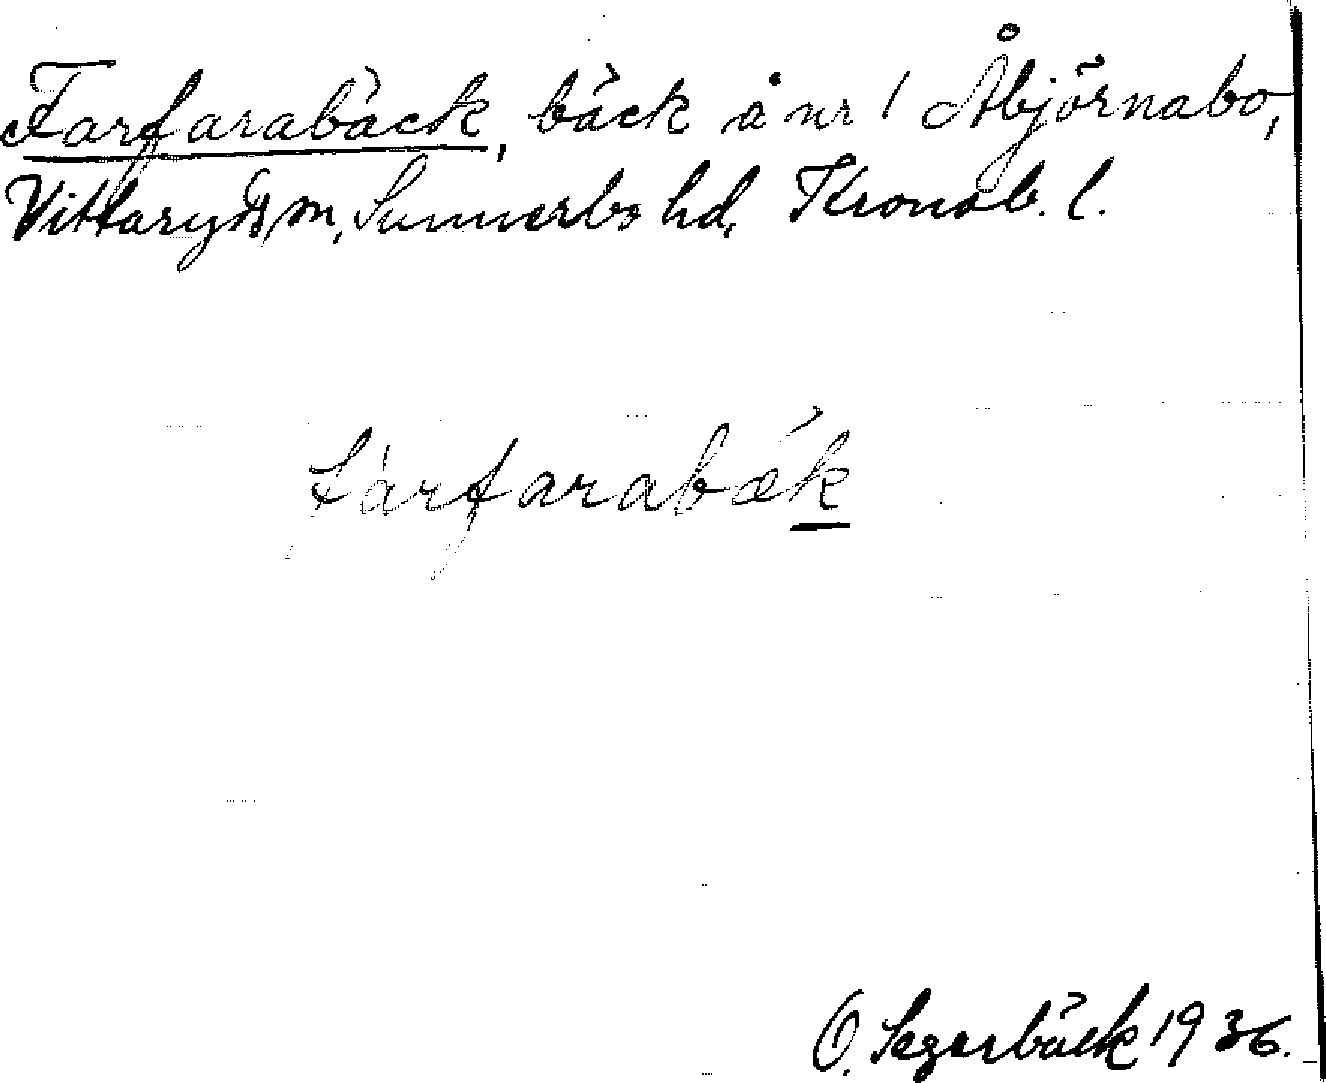 Farfarabäck, bäck å nr 1 Åbjörnabo,
Vittaryds sn, Sunnerbo hd, Kronob. l.
fàrfarabǽk
O. Segerbäck 1936.